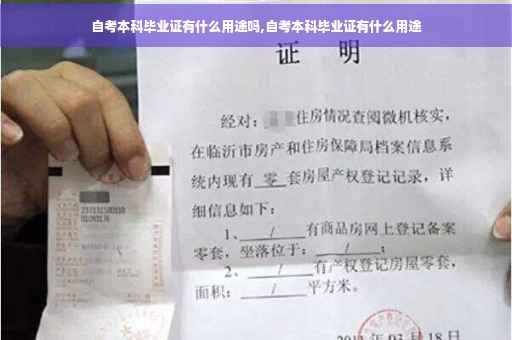 自考本科毕业证有什么用途吗,自考本科毕业证有什么用途
证 明
经对: 住房情况查阅微机核实,
在临沂市房产和住房保障局档案信息系
统内现有 零 套房屋产权登记记录,详
细信息如下:
1、 / 有商品房网上登记备案
零套,坐落位于: / ;
2、 / 有产权登记房屋零套,
面积: / 平方米。
03月18日